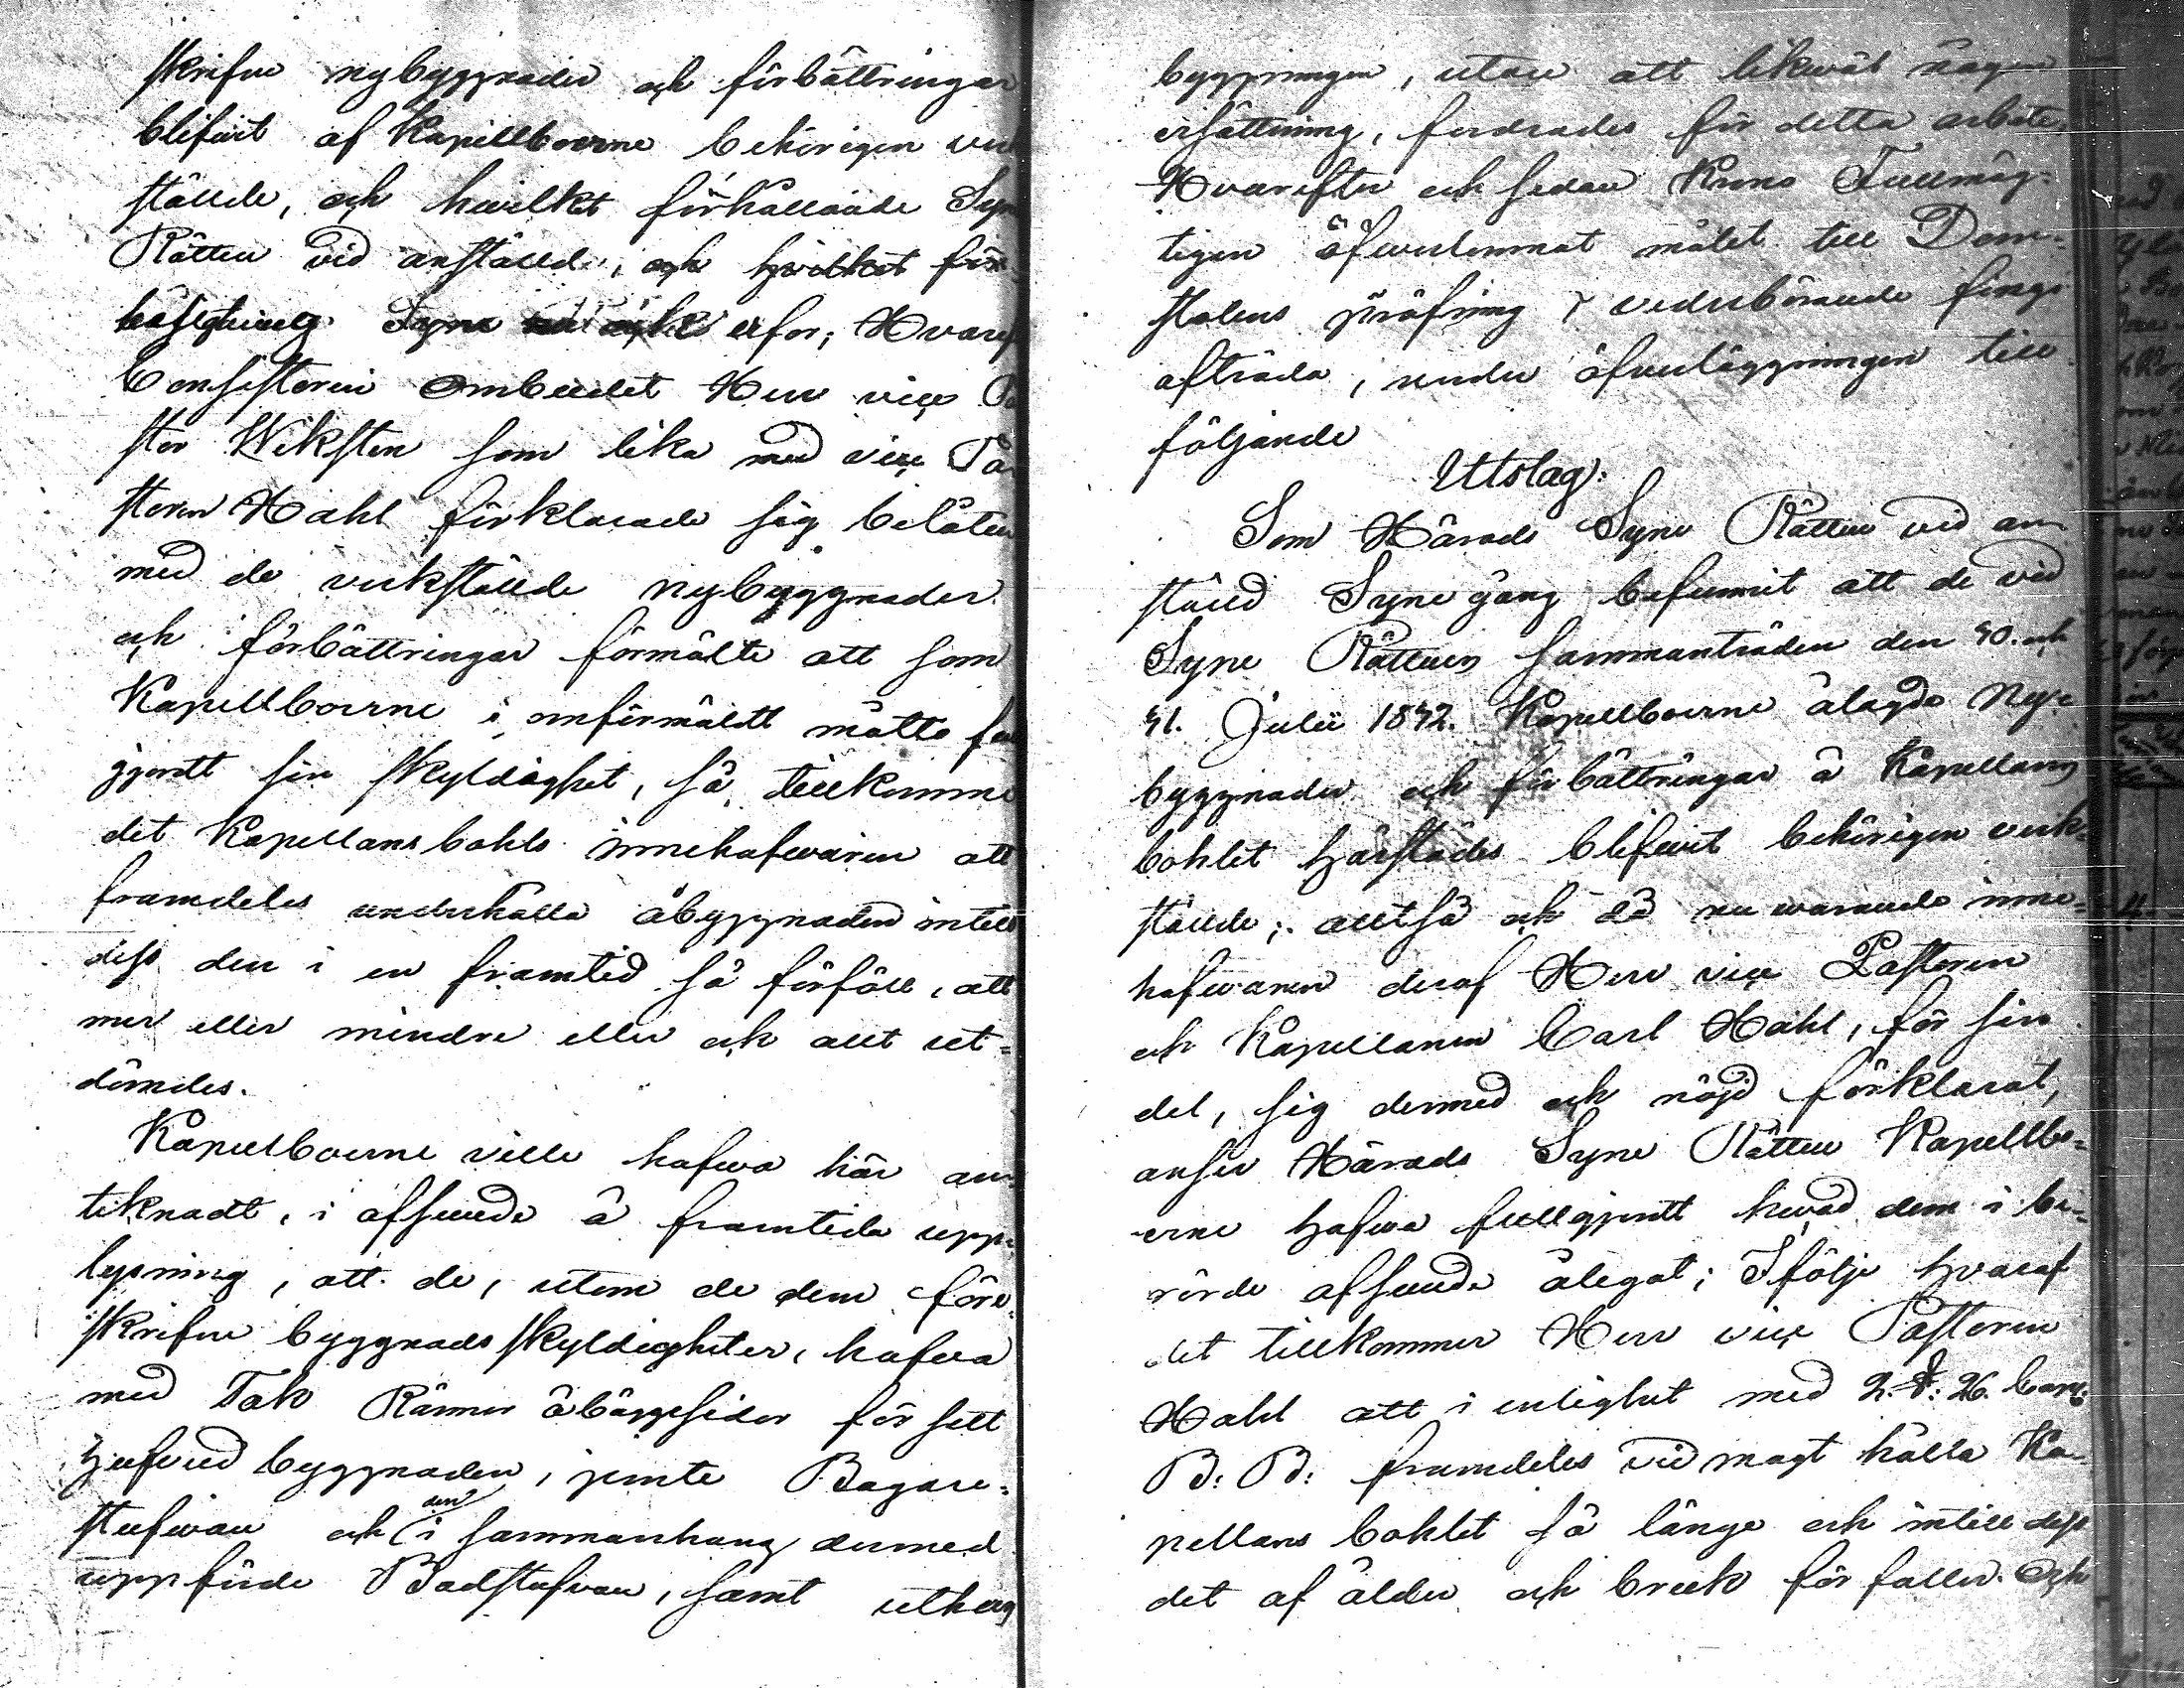 skrifne nybyggnader och förbättringar
blifwit af Kapellboerne behörigen verk
ställde, och hwilket förhållande Syne
Rätten vid anställd, och hwilket för
Syne erfor; Hvaref
Consistorii Ombudet Herr vice Pa
stor Wiksten som lika med vice Pa
storn Hahl förklarade sig belåten
med de verkställde nybyggnader
och förbättringar förmälte att som
Kapellboerne i omförmäldt måtto full
gjordt sin skyldighet, så tillkomme
det Kapellans bohls innehafwaren att
framdeles underhålla åbyggnaden intill
dess den i en framtid så förföll, att
mer eller mindre eller och allt ut-
dömdes.
Kapellboerne ville hafwa här an-
teknadt, i afseende å framtida upp-
lysning, att de, utom de dem före-
skrifne byggnads skyldigheter, hafwa
med Tak Rännor å bägge sidor försett
hufvud byggnaden, jemte Bagare-
stufwan och den i sammanhang dermed
uppförde Badstufvan, samt uthus
byggningen, utan att likwäl någon
ersättning, fordrades för detta arbete,
Hvarefter och sedan Krono Fullmäg-
tigen öfwerlemnat målet till Dom-
stolens pröfning, vederbörande fingo
afträda, under öfverläggningen till
följande
Utslag:
Som Härads Syne Rätten vid an
ställd Syne gång befunnit att de vid
Syne Rättens sammanträden den 30. och
31. Julii 1842. Kapellboerne ålagda Ny-
byggnader och förbättringar å Kapellans
bohlet härstädes blifwit behörigen verk-
ställde; alltså och då nu warande inne-
hafwaren deraf Herr vice Pastoren
och Kapellanen Carl Hahl, för sin
del, sig dermed och nöjd förklarat,
anser Härads Syne Rätten Kapellbo-
erne hafwa fullgjort hwad dem i be-
rörde afseende ålegat; I följe hvaraf
det tillkommer Herr vice Pastoren
Hahl att i enlighet med 2. §: 26. Cap:
B: B: framdeles vid magt hålla Ka-
pellans bohlet så länge och intill dess
det af ålder och bruk förfaller. Och